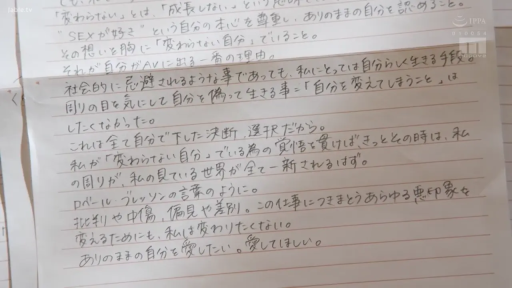 「変わらない」とは「成長しない」という
"SEXが好き"という自分の本心を尊重し、ありのままの自分を認めること。
その想いを胸に「変わらない自分」でいること。
それが自分がAVに出る一番の理由。
社会的に忌避されるような事であっても、私にとっては自分らしく生きる手段。
周りの目を気にして自分を偽って生きる事=「自分を変えてしまうこと」は
したくなかった。
これは全て自分で下した決断、選択だから。
私が「変わらない自分」でいる為の覚悟を貫けば、きっとその時は、私
の周りが、私の見ている世界が全て一新されるはず。
ロベール・ブレッソンの言葉のように。
批判や中傷、偏見や差別。この仕事につきまとうあらゆる悪印象を
変えるためにも、私は変わりたくない。
ありのままの自分を愛したい。愛してほしい。
IPPA